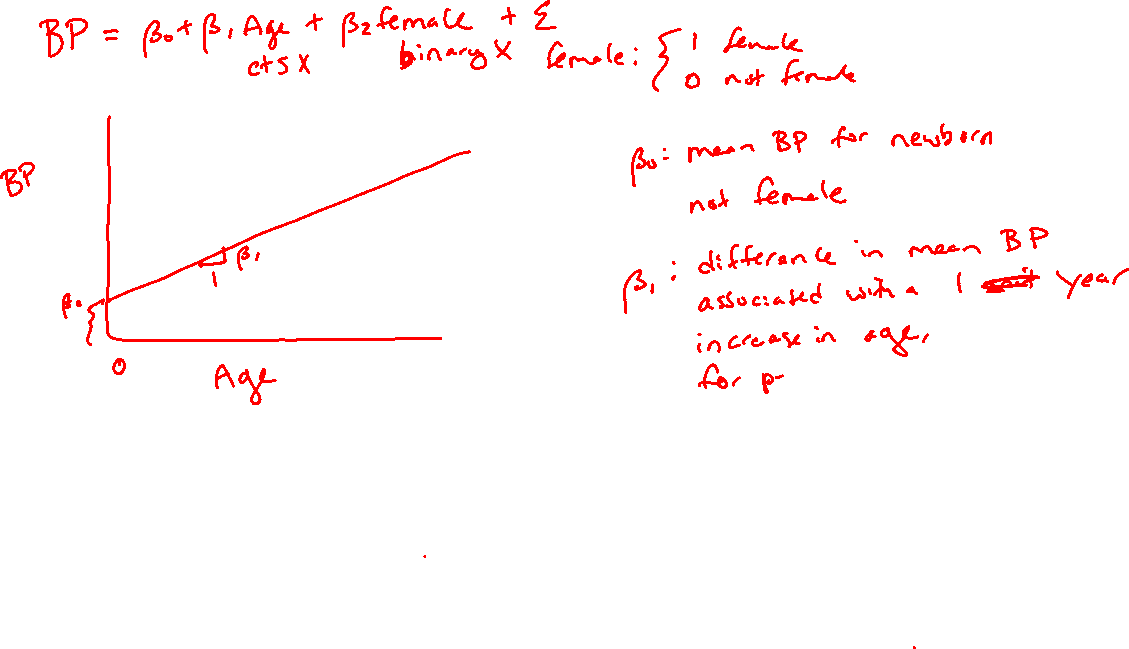 BP = β₀ + β₁ Age + β₂ female + ε
cts X binary X female: { 1 female
0 not female
BP
β₀
β₁
1
0
Age
β₀: mean BP for newborn
not female
β₁: difference in mean BP
associated with a 1 year
increase in age,
for p